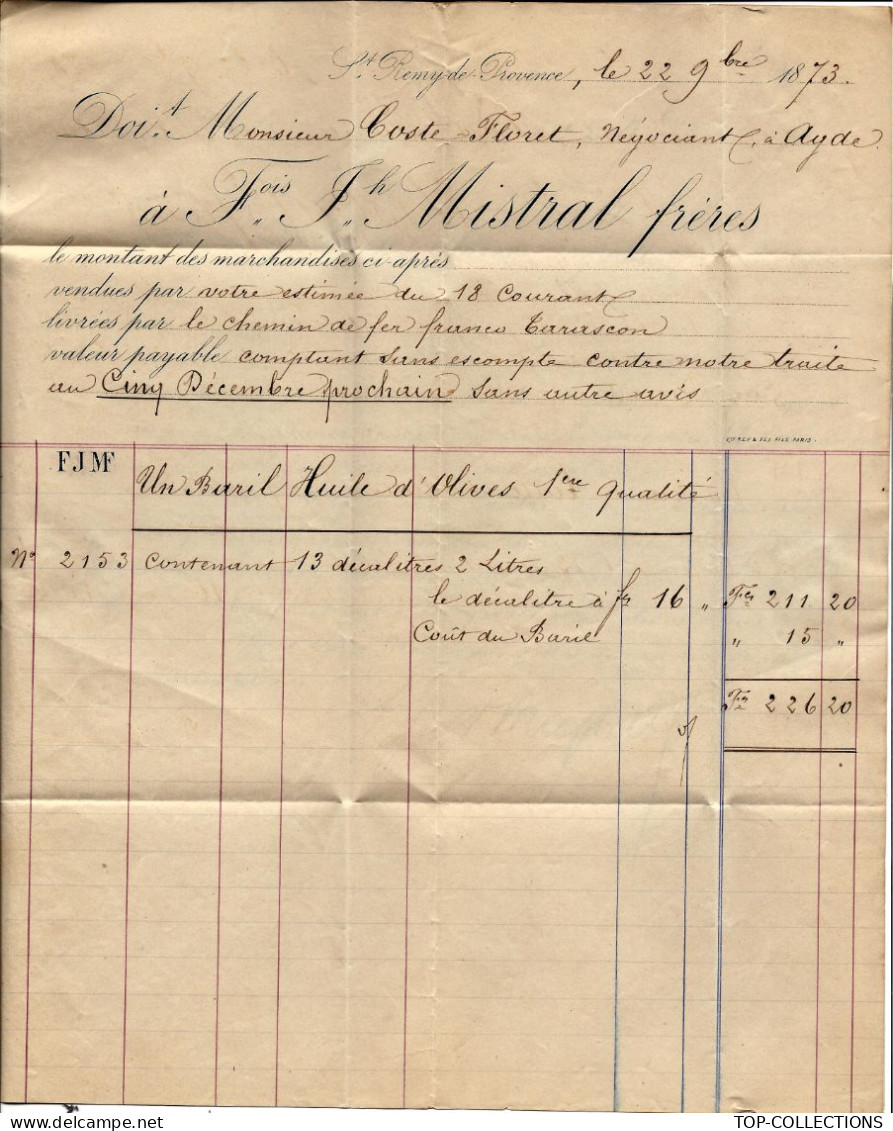 St Remy-de-Provence, le 22 9bre 1873.
Doit Monsieur Coste-Floret, Négociant, à Agde.
à Fois Jh Mistral frères
le montant des marchandises ci-après
vendues par votre estimée du 18 Courant
livrées par le chemin de fer franco Tarascon
valeur payable comptant sans escompte contre notre traite
au Cinq Décembre prochain sans autre avis
FJMF
Un Baril Huile d'Olives 1ere qualité
No 2153 contenant 13 décalitres 2 Litres
le décalitre à fr 16 " Fcs 211 20
Coût du Baril " 15 "
Fs 226 20
TOP-COLLECTIONS